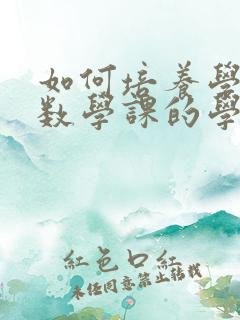 如何培養學
數學課的學
紅色口紅
未經同意禁止轉載